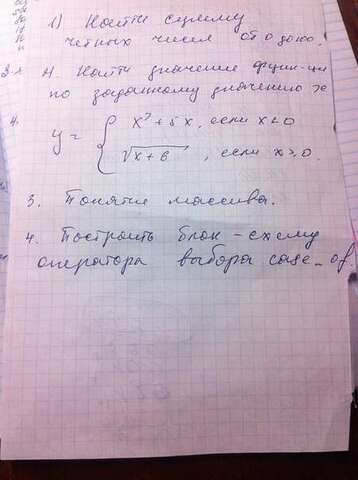 1) Найти сумму
чётных чисел от 0 до 100.
Найти значение функ-ции
по заданному значению x
y = { x² + 5x, если x < 0
√x + 6, если x ≥ 0.
3. Понятие массива.
4. Построить блок-схему
оператора выбора case_of.